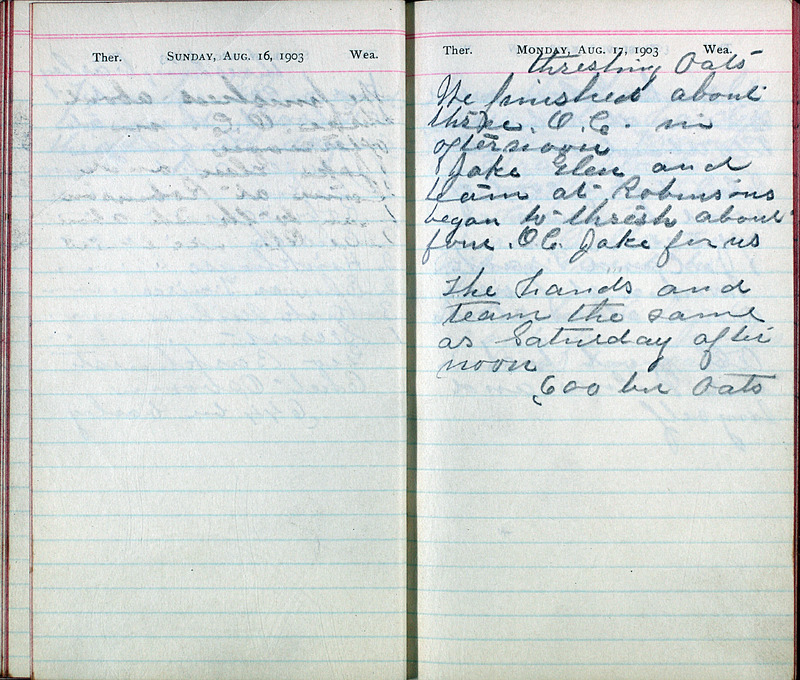 Ther. SUNDAY, AUG. 16, 1903 Wea.
Ther. MONDAY, AUG. 17, 1903 Wea.
threshing Oats
We finished about
three. O.C. in
afternoon
Jake Glen and
team at Robinsons
began to thresh about
four. O.C. Jake for us
The hands and
team the same
as Saturday after
noon
600 bu Oats